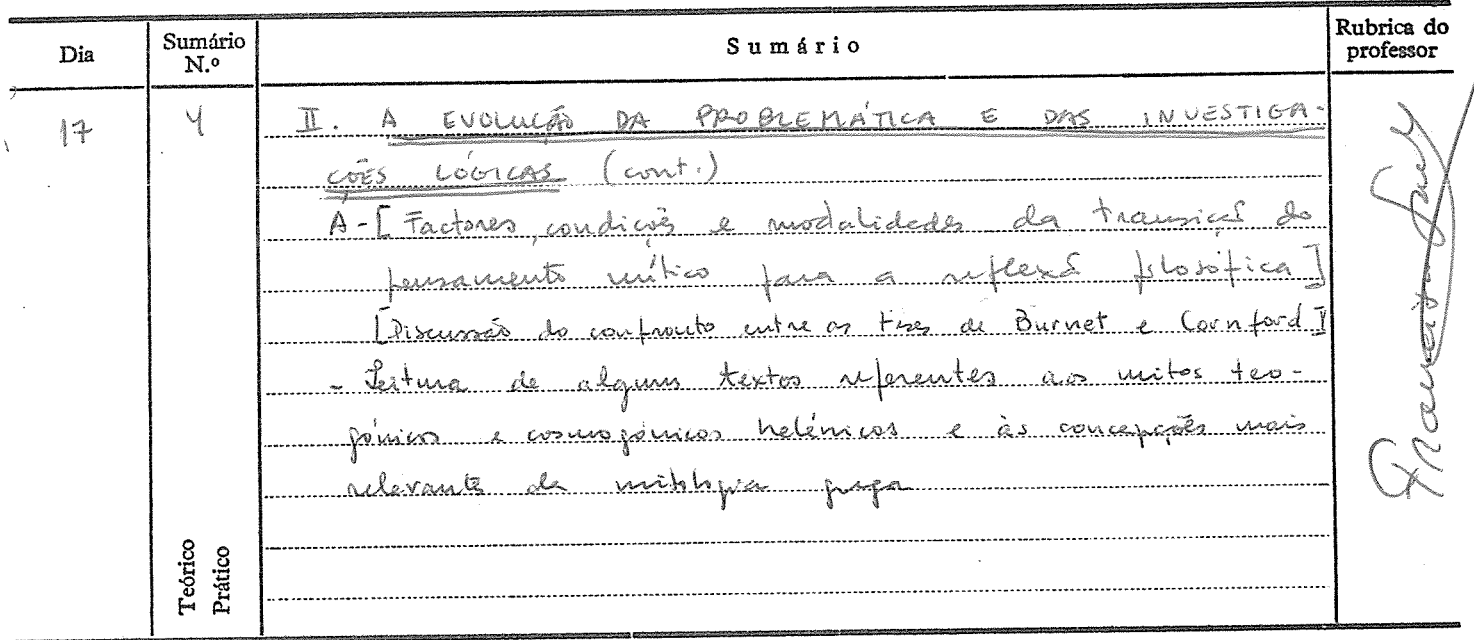 Dia
Sumário N.º
Sumário
Rubrica do professor
17
4
II. A EVOLUÇÃO DA PROBLEMÁTICA E DAS INVESTIGA-
ÇÕES LÓGICAS (cont.)
A - [Factores, condições e modalidades da transição do
pensamento mítico para a reflexão filosófica]
[Discussão do confronto entre as teses de Burnet e Cornford]
- Leitura de alguns textos referentes aos mitos teo-
gónicos e cosmogónicos helénicos e às concepções mais
relevantes da mitologia grega
Teórico
Prático